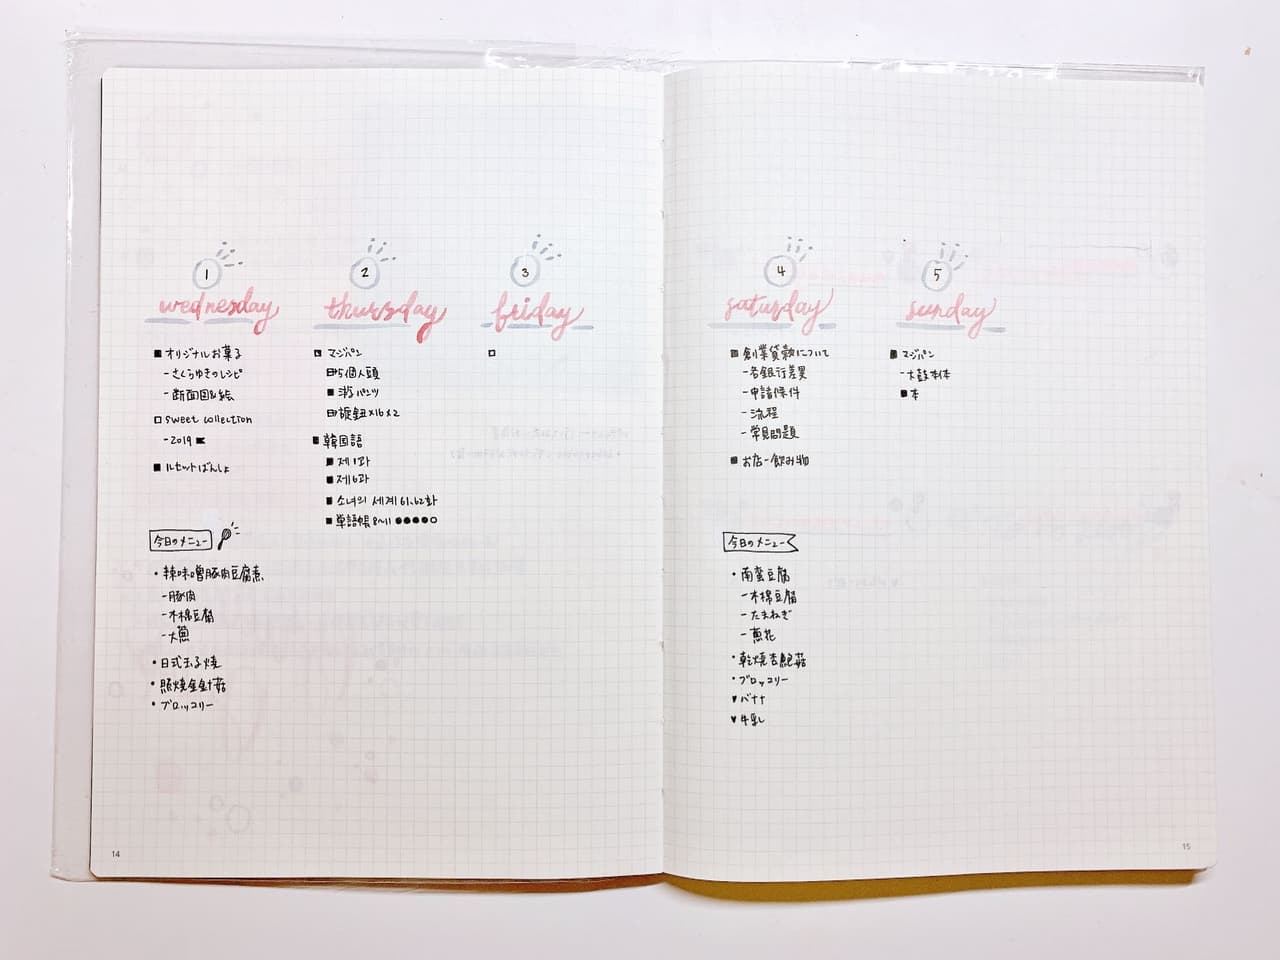 1
wednesday
オリジナルお菓子
-さくらゆきのレシピ
-断面図&絵
sweet collection
-2019
ルセットばんしょ
今日のメニュー
・辣味噌豚肉豆腐煮
-豚肉
-木棉豆腐
-大蔥
・日式玉子燒
・照燒金針菇
・ブロッコリー
2
thursday
マジパン
5個人頭
パンツ
旋鈕×16×2
韓国語
제1과
제6과
소녀의 세계 61、62화
単語帳 8〜11
3
friday
4
saturday
創業貸款について
-各銀行差異
-申請條件
-流程
-常見問題
お店-飲み物
今日のメニュー
・南蛮豆腐
-木棉豆腐
-たまねぎ
-蔥花
・乾燒杏鮑菇
・ブロッコリー
♥バナナ
♥牛乳
5
sunday
マジパン
-太鼓本体
本
14
15